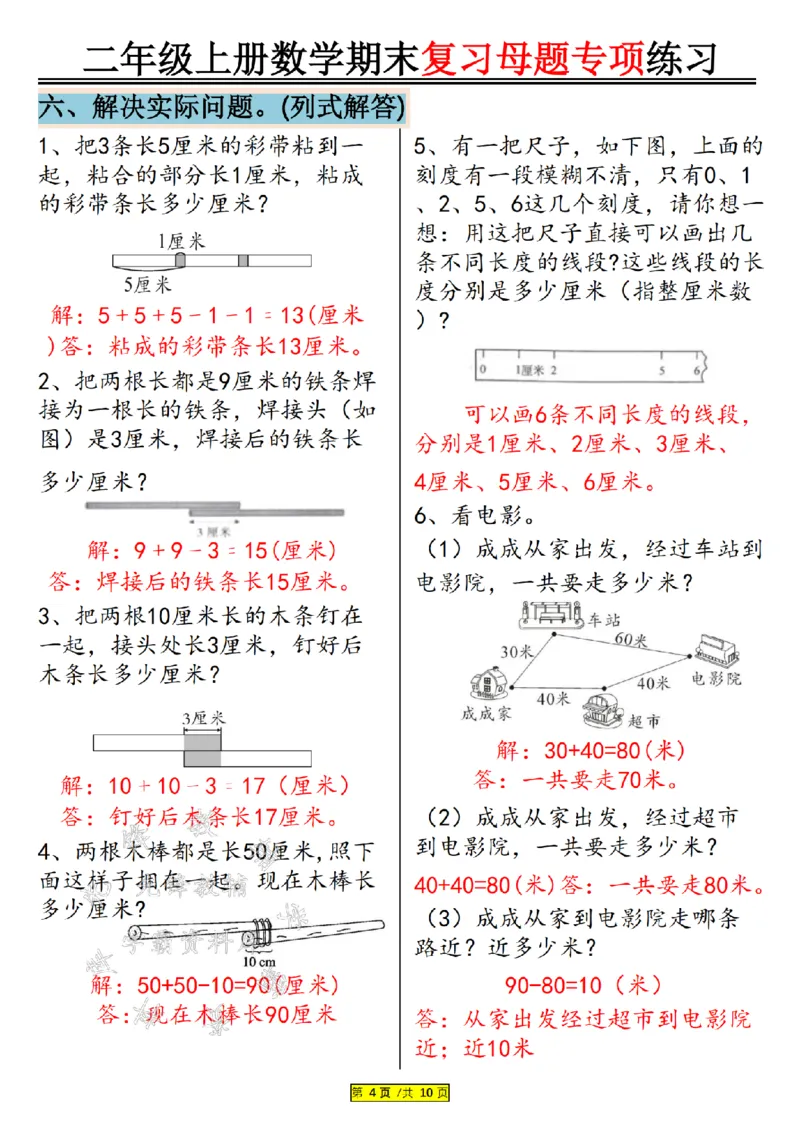 二年级上册数学期末复习母题专项练习
六、解决实际问题。(列式解答)
1、把3条长5厘米的彩带粘到一
起，粘合的部分长1厘米，粘成
的彩带条长多少厘米？
1厘米
5厘米
解：5＋5＋5－1－1＝13(厘米
)答：粘成的彩带条长13厘米。
2、把两根长都是9厘米的铁条焊
接为一根长的铁条，焊接头（如
图）是3厘米，焊接后的铁条长
多少厘米？
3厘米
解：9＋9－3＝15(厘米)
答：焊接后的铁条长15厘米。
3、把两根10厘米长的木条钉在
一起，接头处长3厘米，钉好后
木条长多少厘米？
3厘米
解：10＋10－3＝17（厘米）
答：钉好后木条长17厘米。
4、两根木棒都是长50厘米,照下
面这样子捆在一起。现在木棒长
多少厘米？
10 cm
解：50+50-10=90(厘米)
答：现在木棒长90厘米
5、有一把尺子，如下图，上面的
刻度有一段模糊不清，只有0、1
、2、5、6这几个刻度，请你想一
想：用这把尺子直接可以画出几
条不同长度的线段?这些线段的长
度分别是多少厘米（指整厘米数
）？
0 1厘米 2 5 6
可以画6条不同长度的线段，
分别是1厘米、2厘米、3厘米、
4厘米、5厘米、6厘米。
6、看电影。
（1）成成从家出发，经过车站到
电影院，一共要走多少米？
车站
30米
60米
电影院
40米
40米
成成家
超市
解：30+40=80(米)
答：一共要走70米。
（2）成成从家出发，经过超市
到电影院，一共要走多少米？
40+40=80(米)答：一共要走80米。
（3）成成从家到电影院走哪条
路近？近多少米？
90-80=10（米）
答：从家出发经过超市到电影院
近；近10米
第 4 页 /共 10 页